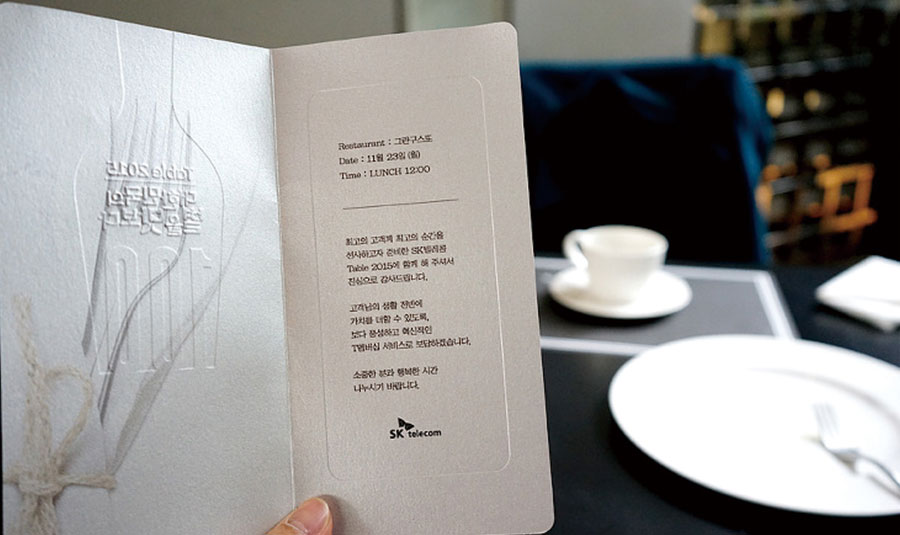 Table 2015
대한민국의
Restaurant : 그란구스또
Date : 11월 23일 (월)
Time : LUNCH 12:00
최고의 고객께 최고의 순간을
선사하고자 준비한 SK텔레콤
Table 2015에 함께 해 주셔서
진심으로 감사드립니다.
고객님의 생활 전반에
가치를 더할 수 있도록,
보다 풍성하고 혁신적인
T멤버십 서비스로 보답하겠습니다.
소중한 분과 행복한 시간
나누시기 바랍니다.
SK telecom